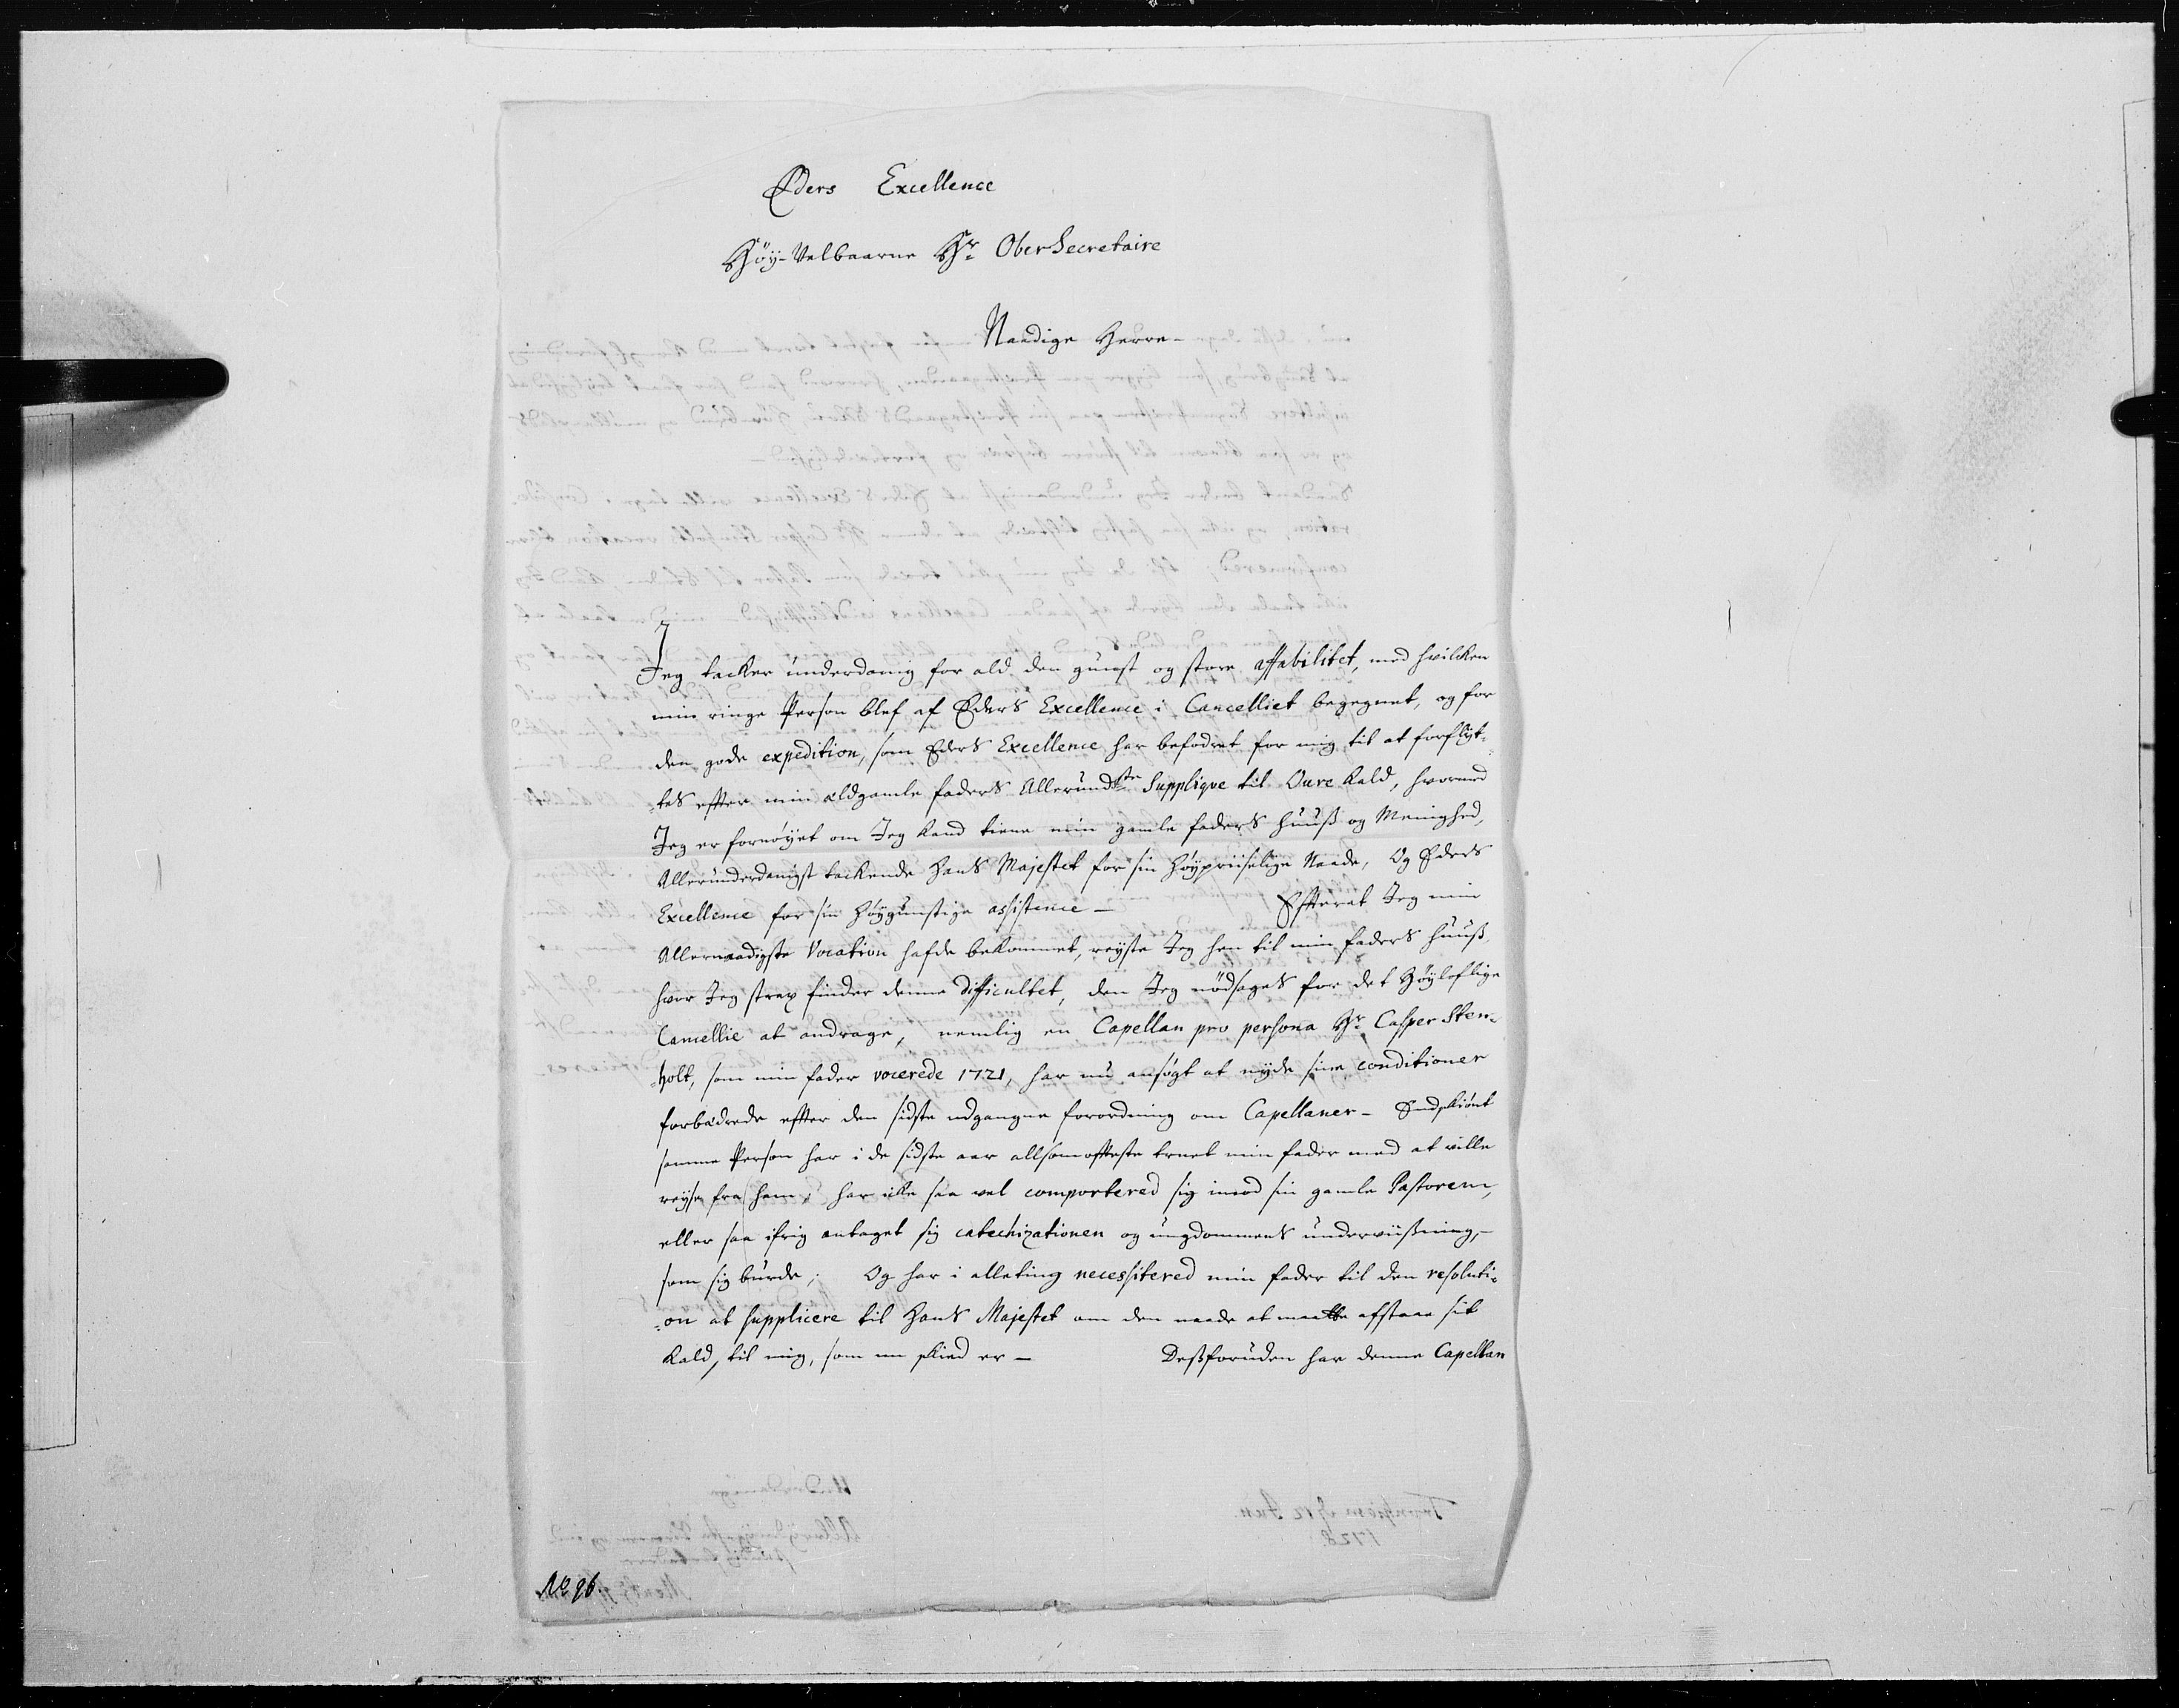 Eders Excellence
Höy-Velbaarne Hr Ober Secretaire
Naadige Herre-
Jeg tacker underdanig for ald den gunst og store affabilitet, med hvilcken
min ringe Person blef af Eders Excellence i Cancelliet begegnet, og for
den gode expedition, som Eders Excellence har befodret for mig til at forflyt-
tes effter min oldgamle faders Allerundste Supplique til Oure Kald, hvormed
Jeg er fornöyet om Jeg Kand tiene min gamle faders huuß og Meenighed,
Allerunderdanigst tackende Hans Majestet for sin höypriiselige Naade, Og Eders
Excellence for sin höygunstige assistence - Effterat Jeg min
Allernaadigste Vocation hafde bekommet, reyste Jeg hen til min faders huuß,
hvor Jeg strax finder denne difficultet, den Jeg nödsages for det Höyloflige
Cancellie at andrage, nemlig en Capellan pro persona Hr Casper Sten-
holt, som min fader vocerede 1721, har nu ansögt at nyde sine conditioner
forbedrede effter den sidste udgangne forordning om Capellaner - Endskiönt
samme Person har i de sidste aar allsomoffteste truet min fader med at ville
reyse fra ham; har icke saa vel comportered sig imod sin gamle Pastorem,
eller saa ifrig antaget sig catechizationen og ungdommens underviißning,-
som sig burde; Og har i alleting necessitered min fader til den resoluti-
on at supplicere til Hans Majestet om den naade at maatte afstaae sit
Kald, til mig, som nu skied er - Deßforuden har denne Capellan
No 96.